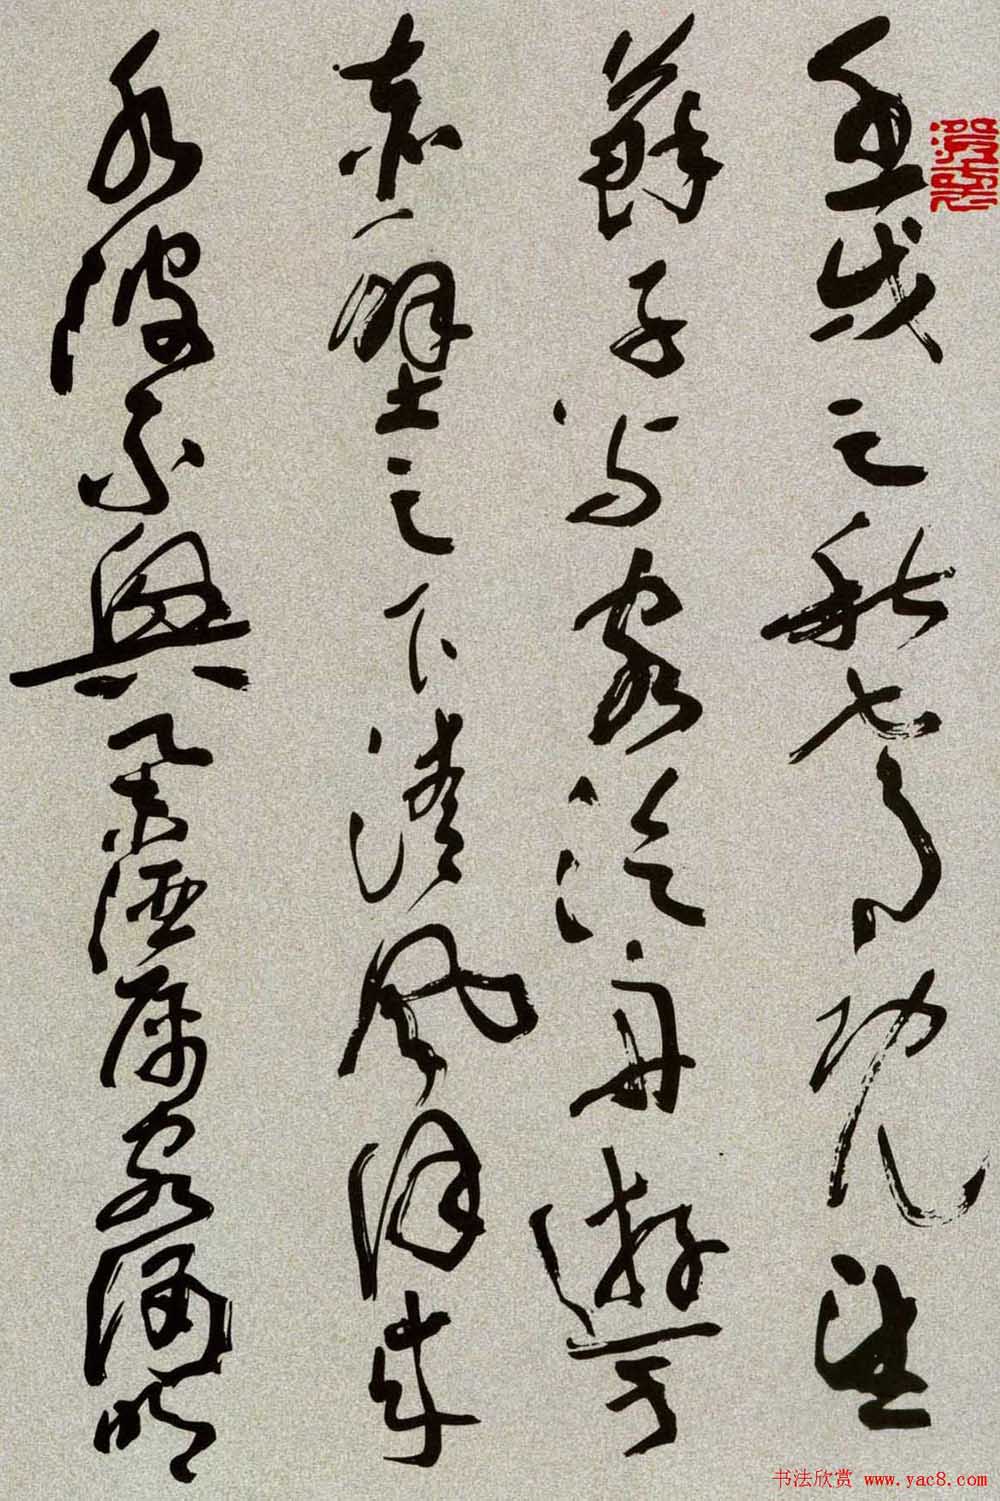 壬戌之秋七月既望
蘇子與客泛舟遊于
赤壁之下清風徐來
水波不興舉酒屬客誦明
书法欣赏 www.yac8.com